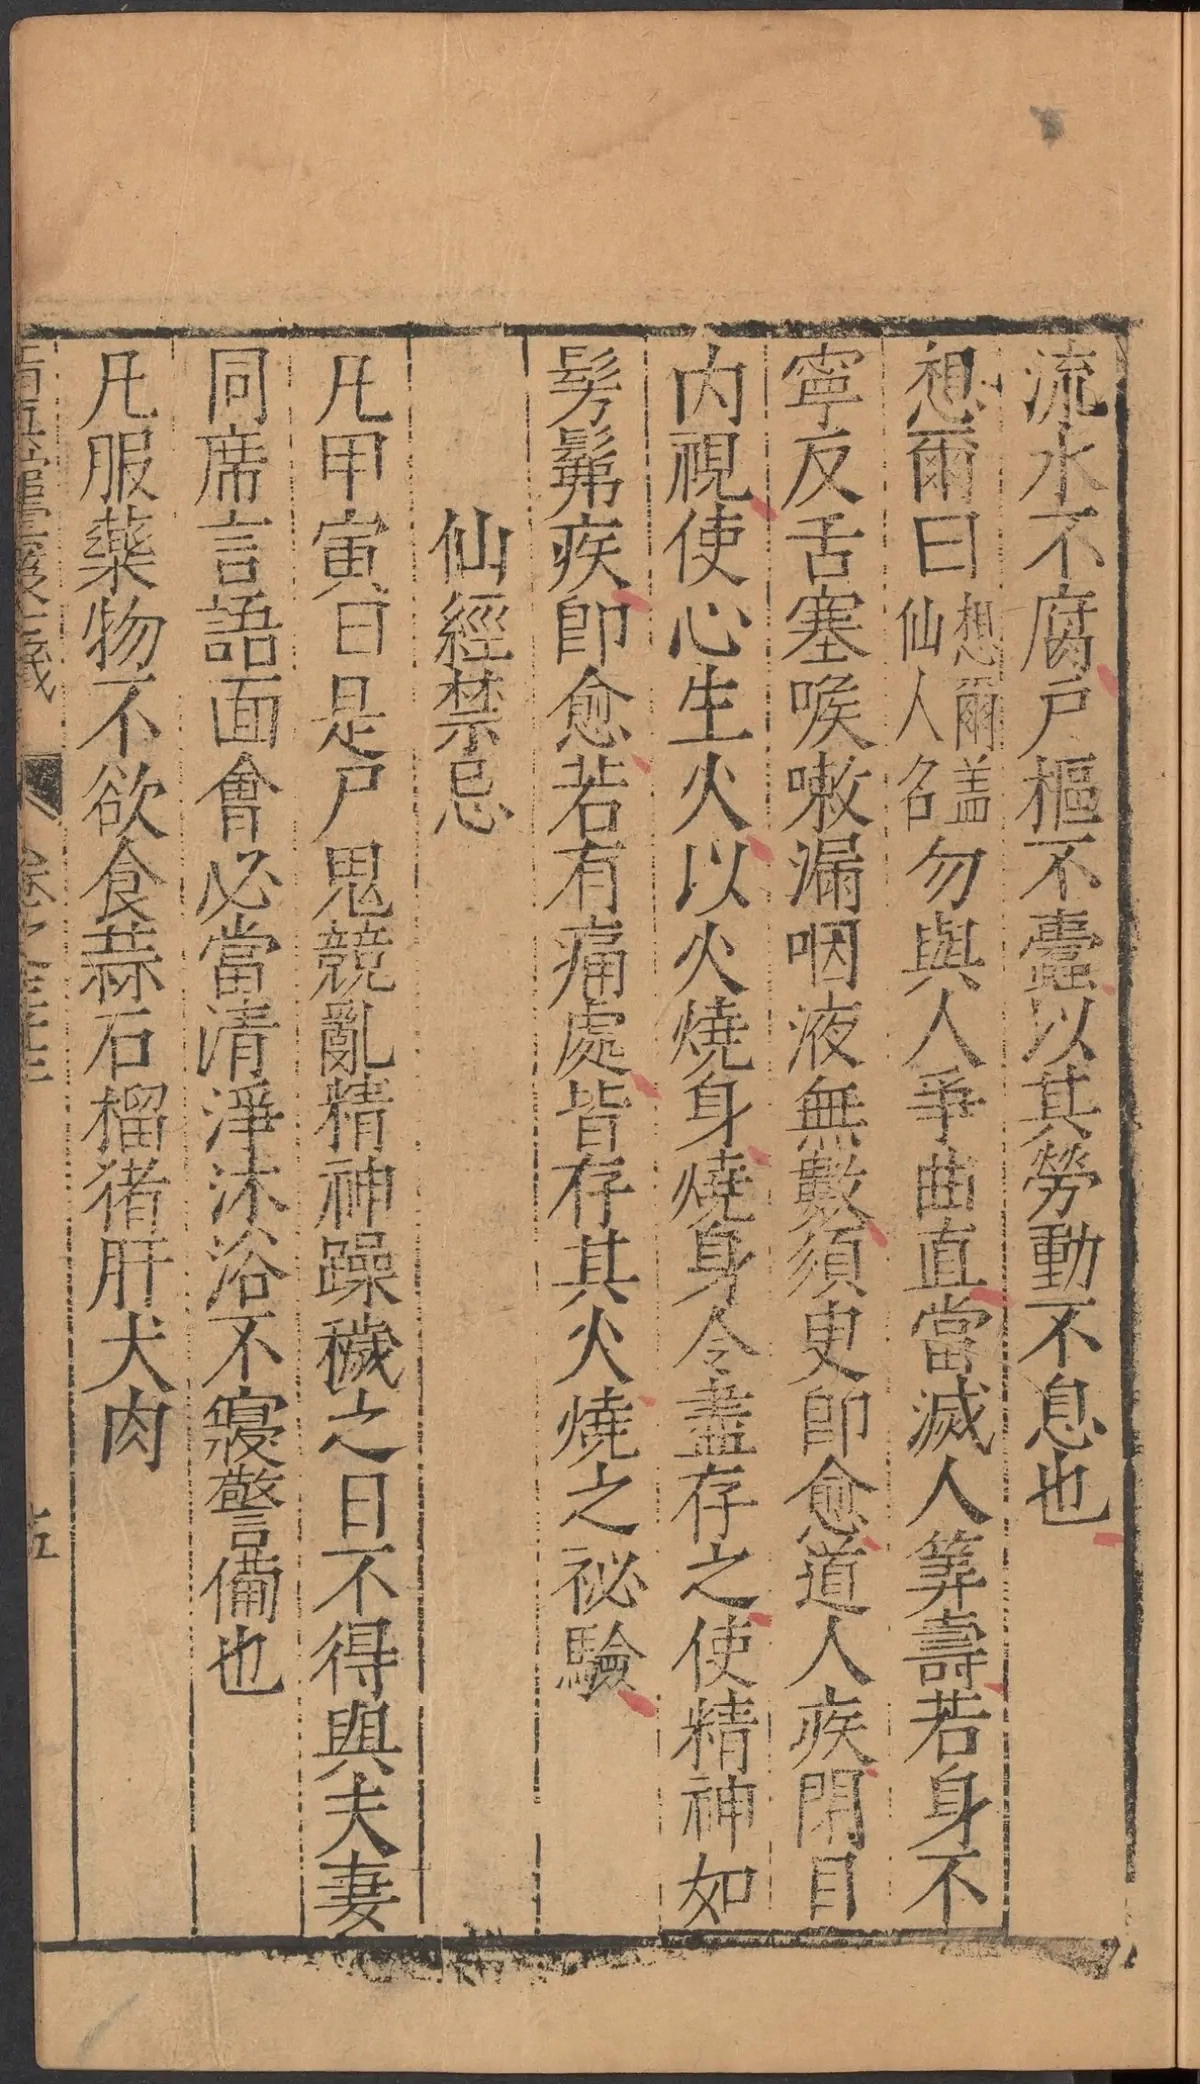 流水不腐戶樞不蠹以其勞動不息也
想爾曰想爾蓋仙人名勿與人爭曲直當滅人筭壽若身不
寧反舌塞喉嗽漏咽液無數須臾即愈道人疾閉目
內視使心生火以火燒身燒身令盡存之使精神如
髣髴疾即愈若有痛處皆存其火燒之祕驗
仙經禁忌
凡甲寅日是尸鬼競亂精神躁穢之日不得與夫妻
同席言語面會必當清淨沐浴不寢警備也
凡服藥物不欲食蒜石榴猪肝犬肉
卷之三十三
五